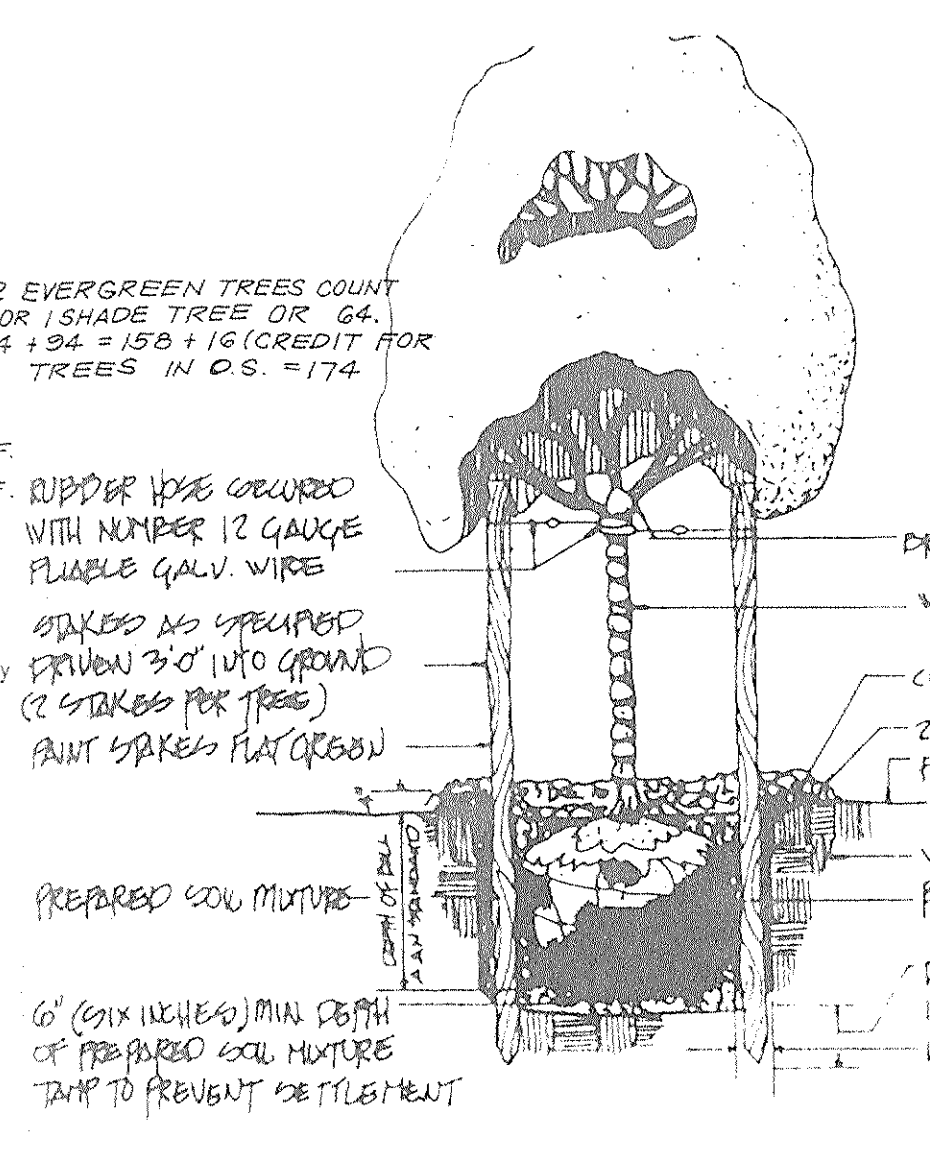 2 EVERGREEN TREES COUNT
OR 1 SHADE TREE OR 64.
4 + 94 = 158 + 16 (CREDIT FOR
TREES IN O.S. = 174
F.
F.
RUBBER HOSE SECURED
WITH NUMBER 12 GAUGE
PLIABLE GALV. WIRE
STAKES AS SPECIFIED
y
DRIVEN 3'0" INTO GROUND
(2 STAKES PER TREE)
PAINT STAKES FLAT GREEN
4"
DEPTH OF BALL
AAN STANDARD
PREPARED SOIL MIXTURE
6" (SIX INCHES) MIN DEPTH
OF PREPARED SOIL MIXTURE
TAMP TO PREVENT SETTLEMENT